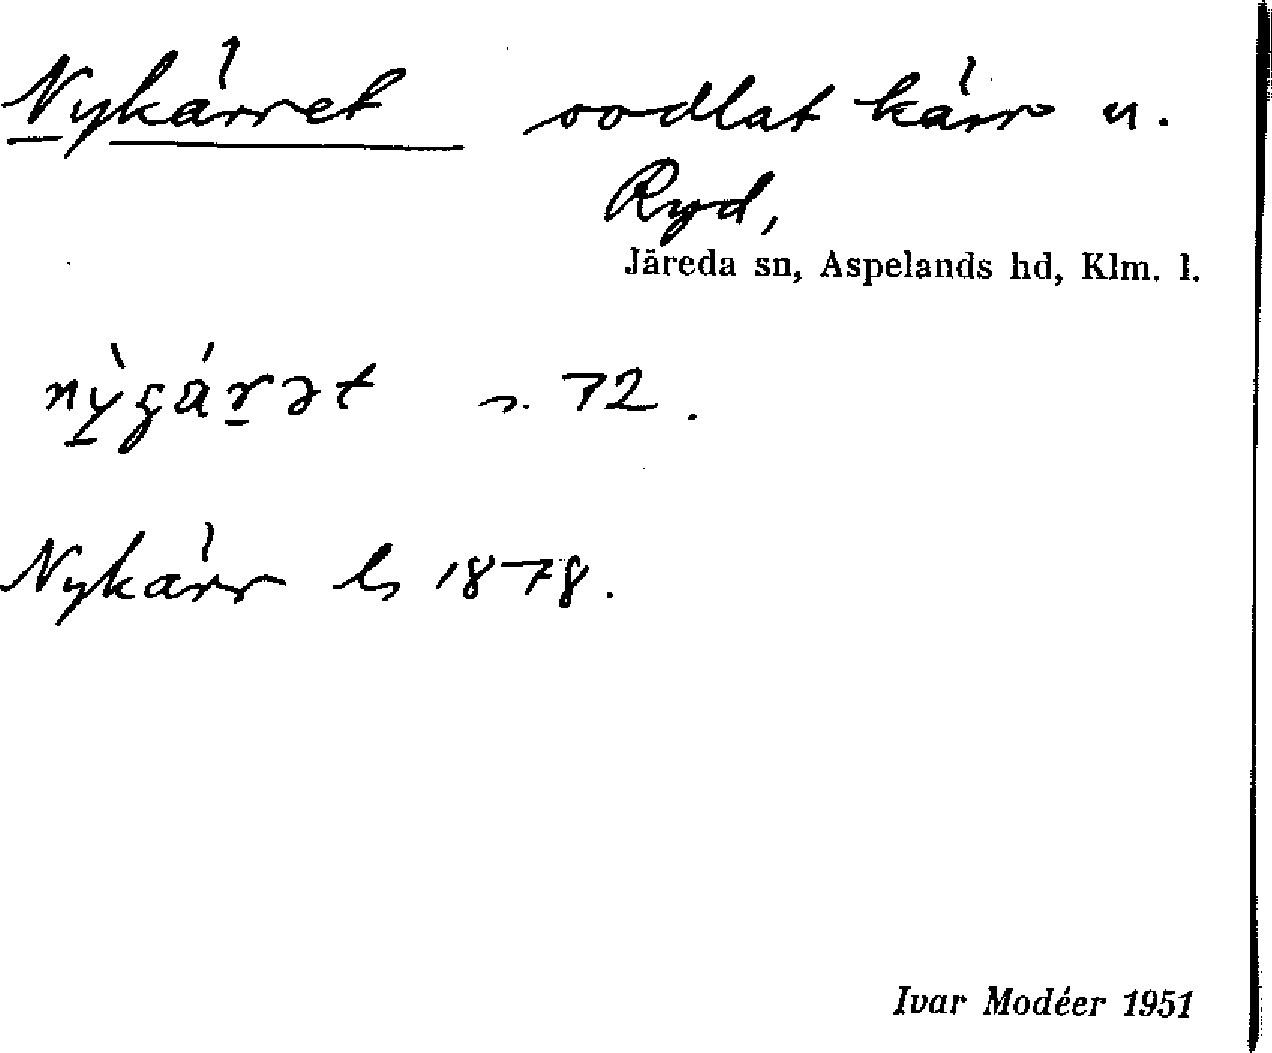 Nykärret oodlat kärr u.
Ryd,
Järeda sn, Aspelands hd, Klm. l.
s. 72.
Nykärr ls 1878.
Ivar Modéer 1951